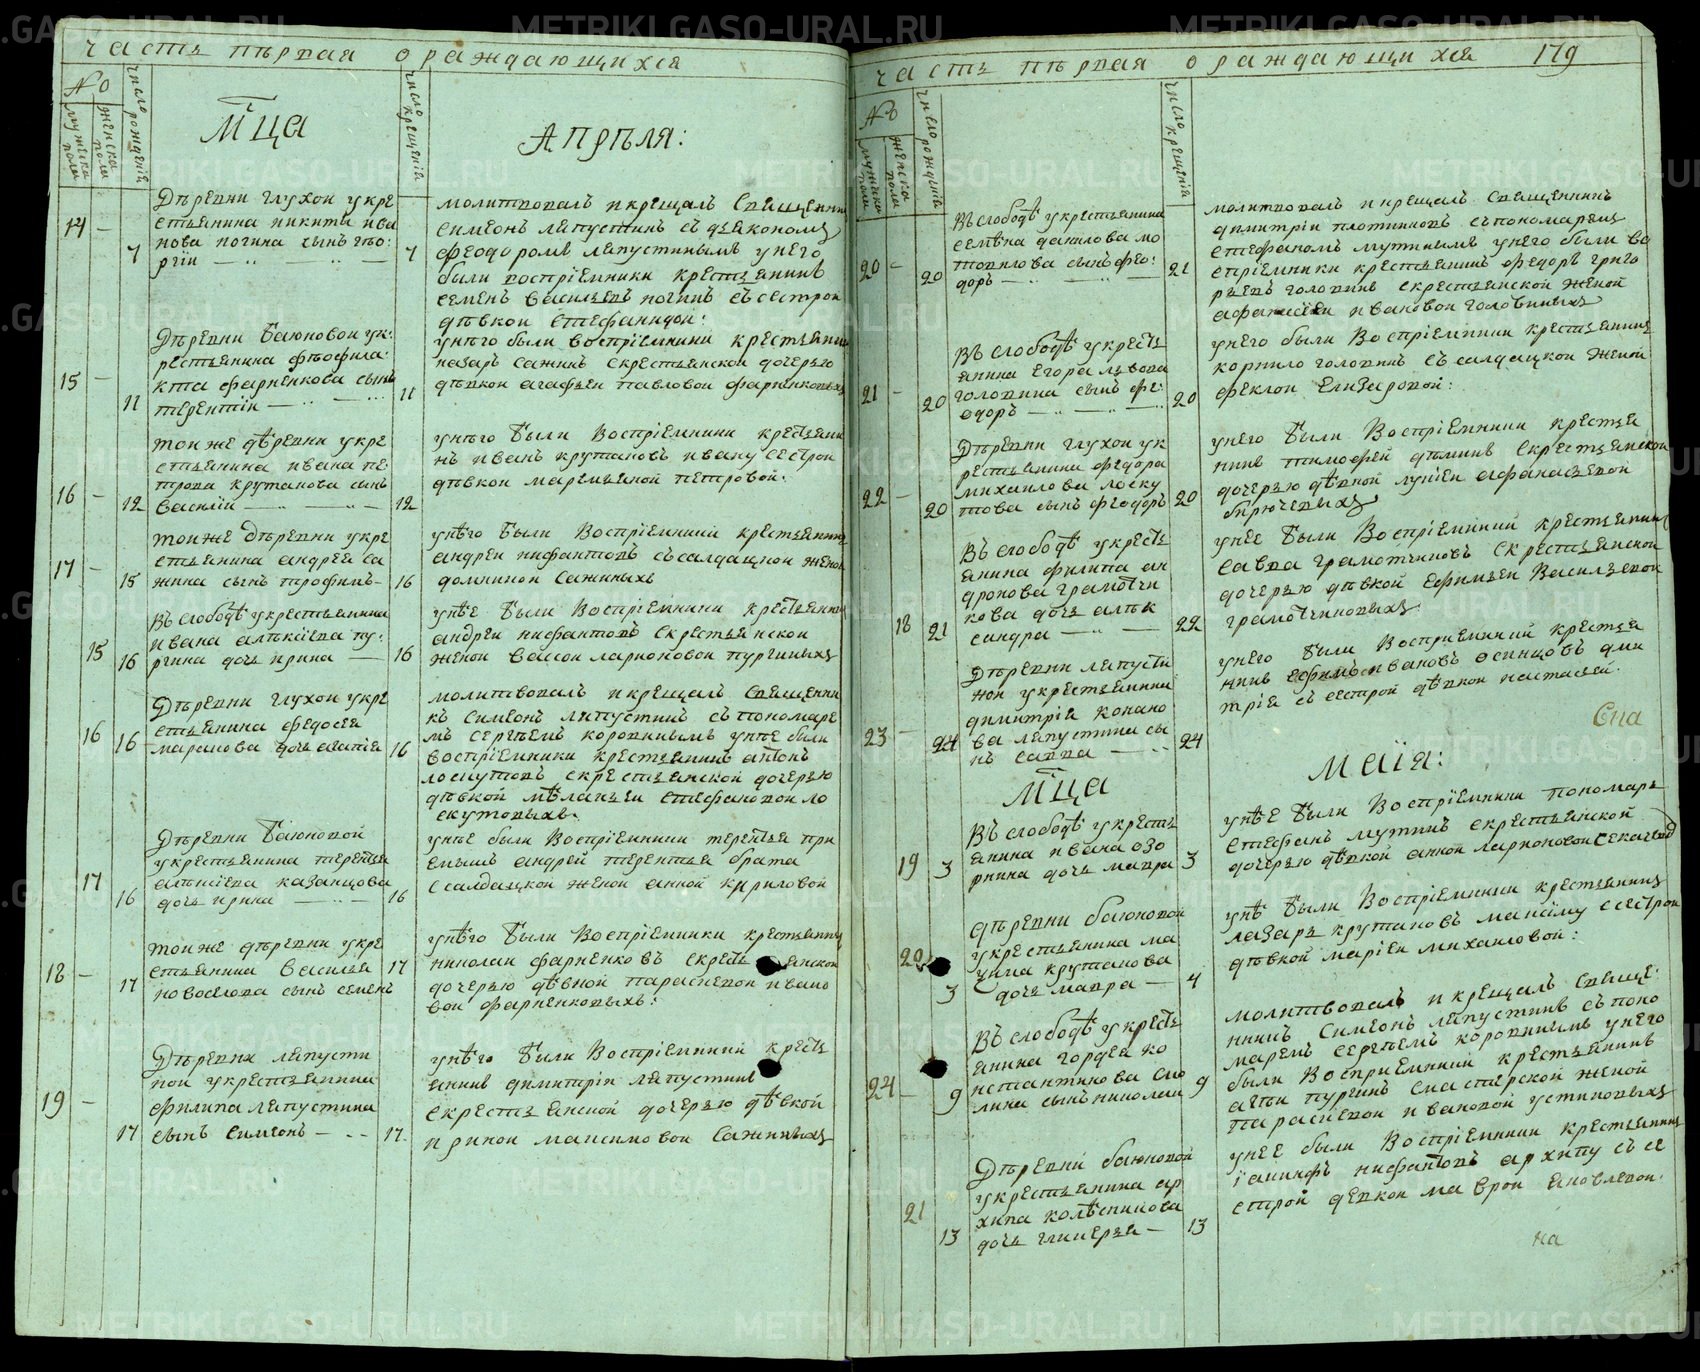 часть пѣрвая о раждающихся
№
мужеска полы
женска полы
число рождения
Мца
число крещения
Апрѣля:
14 —
7
Дѣревни глухой укре
стьянина никиты ива
нова ногина сынъ гѣо:
ргии — „ — „ —
7
молитвовалъ икрещалъ Священни
симеонъ ляпустинъ съ дьякономъ
феодоромъ ляпустинымъ унего
были воспрiемники крестьянинъ
семенъ васильевъ ногинъ съ сестрой
дѣвкой стефанидой:
15 —
11
Дѣревни баюновой ук:
рестьянина феофила:
кта фарненкова сынъ
терентiи — „ — „
11
унѣго были воспрiемники крестьянинъ
назаръ сажинъ скрестьянской дочерью
дѣвкой агафьей павловой фарненковыхъ
16 —
12
той же дѣревни укре
стьянина ивана пе
трова крутакова сынъ
василiи — „ — „ —
12
унѣго были воспрiемники крестьяни
нъ иванъ крутаковъ ивану сестрой
дѣвкой маремьяной петровой:
17 —
15
той же дѣревни укре
стьянина андрея са
жина сынъ трофимъ —
16
унѣго были воспрiемники крестьянинъ
андреи нифантовъ съ салдацкой женой
домникой сажиныхъ
15
16
Въ слободѣ укрестьянина
ивана алѣксiева пу:
ргина дочь ирина —
16
унѣе были воспрiемники крестьянинъ
андреи нифантовъ скрестьянской
женой васой ларионовой пургиныхъ
16
16
Дѣревни глухой укре
стьянина федосея
маракова дочь агапiя
16
молитвовалъ икрещалъ Священни
къ симеонъ ляпустинъ съ пономаре
мъ сергѣемъ коровинымъ унѣе были
воспрiемники крестьянинъ антонъ
лоскутовъ скрестьянской дочерью
дѣвкой мѣланьей стефановой ло
скутовыхъ.
17
16
Дѣревни баюновой
укрестьянина терентья
алѣксiева казанцова
дочь ирина — „ —
16
унѣе были воспрiемники терентья при
емышъ андрей терентья брата
ссалдацкой женой анной кириловой
18 —
17
той же дѣревни укре
стьянина василья
новоселова сынъ семенъ
17
унѣго были воспрiемники крестьянинъ
николаи фарненковъ скресть янской
дочерью дѣвкой парасковой ивано
вой фарненковыхъ:
19 —
17
Дѣревни ляпусти
ной укрестьянина
филипа ляпустина
сынъ симеонъ — - -
17
унѣго были воспрiемники кресть
янинъ димитрiи ляпустинъ
скрестьянской дочерью дѣвкой
ириной максимовой сажиныхъ
часть пѣрвая о раждающихся 179
№
мужеска полы
женска полы
число рождения
число крещения
20 —
20
Въ слободѣ укрестьянина
семѣна данилова мо
товилова сынъ фео:
доръ — „ — „ —
21
молитвовалъ икрещалъ Священникъ
димитрiи плотниковъ съ пономаремъ
стефаномъ мутинымъ унего были во
спрiемники крестьянинъ федоръ григо
рьевъ головинъ скрестьянской женой
афанасiей ивановой головиныхъ
21 —
20
Въ слободѣ укресть
янина егора львова
головина сынъ фе:
одоръ — „ — „ —
20
унего были воспрiемники крестьянинъ
корнило головинъ съ салдацкой женой
феклой елизаровой:
22 —
20
Дѣревни глухой ук
рестьянина федора
михаилова лоску
това сынъ феодоръ
20
унего были воспрiемники крестья
нинъ тимофей дѣминъ скрестьянской
дочерью дѣвкой лукiей афанасьевой
бирючевыхъ
18
21
Въ слободѣ укресть
янина филипа ан
дронова грамотчи
кова дочь алѣк
сандра — „ —
22
унее были воспрiемники крестьянинъ
савва грамотчиковъ скрестьянской
дочерью дѣвкой ефимьей васильевой
грамотчиковыхъ.
23 —
24
Дѣревни ляпусти
ной укрестьянина
димитрiя конано
ва ляпустина сы
нъ савва — „
24
унего были воспрiемники крестья
нинъ ефимъ ивановъ осинцовъ дми
трiя съ сестрой дѣвкой настасьей.
Спа
Мца
маiя:
19
3
Въ слободѣ укресть
янина ивана озо
рнина дочь мавра
3
унѣе были воспрiемники пономарь
стефанъ мутинъ скрестьянской
дочерью дѣвкой анной ларионовой секачевой
20
3
дѣревни баюновой
укрестьянина ма
ѯима крутакова
дочь мавра —
4
унѣ были воспрiемники крестьянинъ
лазарь крутаковъ максиму ссестрой
дѣвкой марiей михаиловой:
24 —
9
Въ слободѣ укресть
янина гордея ко
нстантинова сло
лина сынъ николаи
9
молитвовалъ икрещалъ Свяще
нникъ симеонъ ляпустинъ съ поно
маремъ сергѣемъ коровинымъ унего
были воспрiемники крестьянинъ
агѣи пургинъ смастерской женой
парасковой ивановой устиновыхъ
21
13
Дѣревни баюновой
укрестьянина ар
хипа колѣсникова
дочь гликерья —
13
унее были воспрiемники крестьянинъ
iакинфъ нифантовъ архипу съ се
строй девкой маврой яковлевой.
на